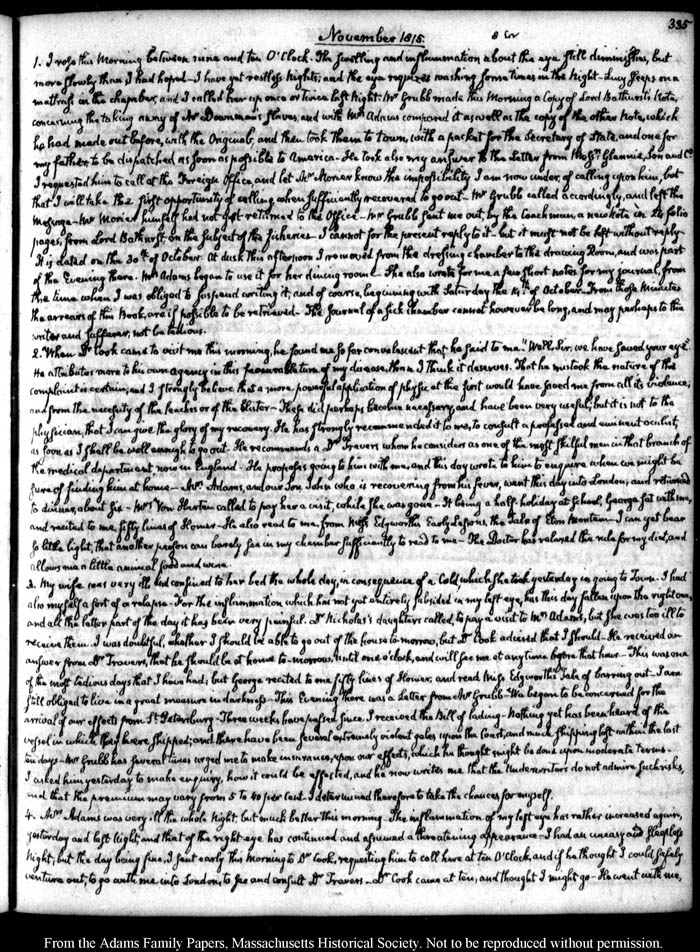 335
November 1815.
1. I rose this Morning between nine and ten O'Clock. The swelling and inflammation about the eye still diminishes, but
more slowly than I had hoped— I have yet restless Nights; and the eye requires washing sometimes in the Night— Lucy sleeps on a
mattrass in the chamber, and I called her up once or twice last Night. Mr Grubb made this Morning a Copy of Lord Bathurst's Note,
concerning the taking away of Mr Downman's Slaves, and with Mrs Adams compared it as well as the copy of the other Note, which
he had made out before, with the Originals, and then took them to town, with a packet for the Secretary of State, and one for
my father, to be dispatched as soon as possible to America— He took also my answer to the Letter from Messrs Glennie, Son and Co
I requested him to call at the Foreign Office, and let Mr Morier know the impossibility I am now under, of calling upon him, but
that I will take the first opportunity of calling when sufficiently recovered to go out— Mr Grubb called accordingly, and left the
message— Mr Morier himself had not yet returned to the Office— Mr Grubb sent me out, by the Coachman, a new Note in 24 folio
pages, from Lord Bathurst, on the subject of the Fisheries— I cannot for the present reply to it— but it must not be left without reply—
It is dated on the 30th of October. At dusk this afternoon I removed from the dressing chamber to the drawing Room, and was part
of the Evening there. Mrs Adams began to use it for her dining room— She also wrote for me a few short notes for my journal, from
the time when I was obliged to suspend writing it; and of course, beginning with Saturday the 14th of October. From those Minutes
the arrears of this Book, are if possible to be retrieved— The Journal of a sick chamber cannot however be long, and may perhaps to the
writer and sufferer, not be tedious.
2. When Dr Cook came to visit me this morning, he found me so far convalescent that he said to me "Well, Sir. we have saved your eye."
He attributes more to his own agency in this favourable turn of my disease, than I think it deserves. That he mistook the nature of the
complaint is certain; and I strongly believe that a more powerful application of physic at the first would have saved me from all its violence;
and from the necessity of the leaches or of the blister— These did perhaps become necessary, and have been very useful; but it is not to the
physician, that I can give the glory of my recovery. He has strongly recommended it to me, to consult a professed and eminent oculist,
as soon as I shall be well enough to go out. He recommends a Dr Travers, whom he considers as one of the most skilful men in that branch of
the medical department now in England— He proposes going to him with me, and this day wrote to him to enquire when we might be
sure of finding him at home— Mrs Adams, and our Son John who is recovering from his fever, went this day into London; and returned
to dinner, about six— Mrs Von Harten called to pay her a visit, while she was gone— It being a half-holiday at School, George sat with me,
and recited to me, fifty lines of Homer— He also read to me, from Miss Edgeworth's Early Lessons, the Tale of Eton Montem— I can yet bear
so little light, that another person can barely see in my chamber sufficiently to read to me— The Doctor has relaxed the rule for my diet, and
allows me a little animal food and wine.
3. My wife was very ill and confined to her bed the whole day, in consequence of a Cold which she took yesterday in going to Town— I had
also myself a sort of a relapse— For the inflammation, which has not yet entirely subsided in my left eye, has this day fallen upon the right one,
and all the latter part of the day it has been very painful. Dr Nicholas's daughters called, to pay a visit to Mrs Adams, but she was too ill to
receive them. I was doubtful, whether I should be able to go out of the house to-morrow, but Dr Cook advised that I should— He received an
answer from Dr Travers, that he should be at home to-morrow, until one o'clock, and will see me at any time before that hour— This was one
of the most tedious days that I have had; but George recited to me fifty lines of Homer; and read Miss Edgeworth's Tale of barring out— I am
still obliged to live in a great measure in darkness— This Evening there was a Letter from Mr Grubb— We began to be concerned for the
arrival of our effects from St. Petersburg— Three weeks have passed since I received the Bill of lading— Nothing yet has been heard of the
vessel in which they were shipped; and there have been several extremely violent gales upon the Coast, and much shipping lost within the last
ten days— Mr Grubb has several times urged me to make insurance, upon our effects, which he thought might be done upon moderate terms—
I asked him yesterday to make enquiry, how it could be effected, and he now writes me that the Underwriters do not admire such risks,
and that the premium may vary from 5 to 40 per Cent— I determined therefore to take the chances for myself.
4. Mrs Adams was very ill the whole Night but much better this morning— The inflammation of my left eye has rather increased again,
yesterday and last Night, and that of the right eye has continued and assumed a threatening appearance— I had an uneasy and sleepless
Night, but the day being fine, I sent early this Morning to Dr Cook, requesting him to call here at ten O'Clock, and if he thought I could safely
venture out, to go with me into London, to see and consult Dr Travers— Dr Cook came at ten, and thought I might go— He went with me,
From the Adams Family Papers, Massachusetts Historical Society. Not to be reproduced without permission.